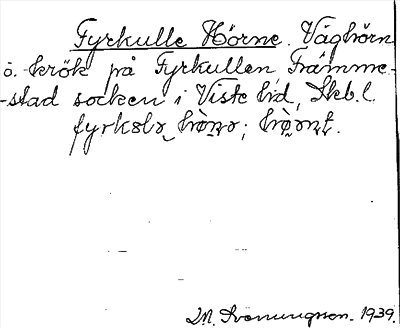 Fyrkulle Hörne. Väghörn
o. krök på Fyrkullen Främme-
-stad socken i Viste hd, Skb. l.
M. Svanungsson. 1939.